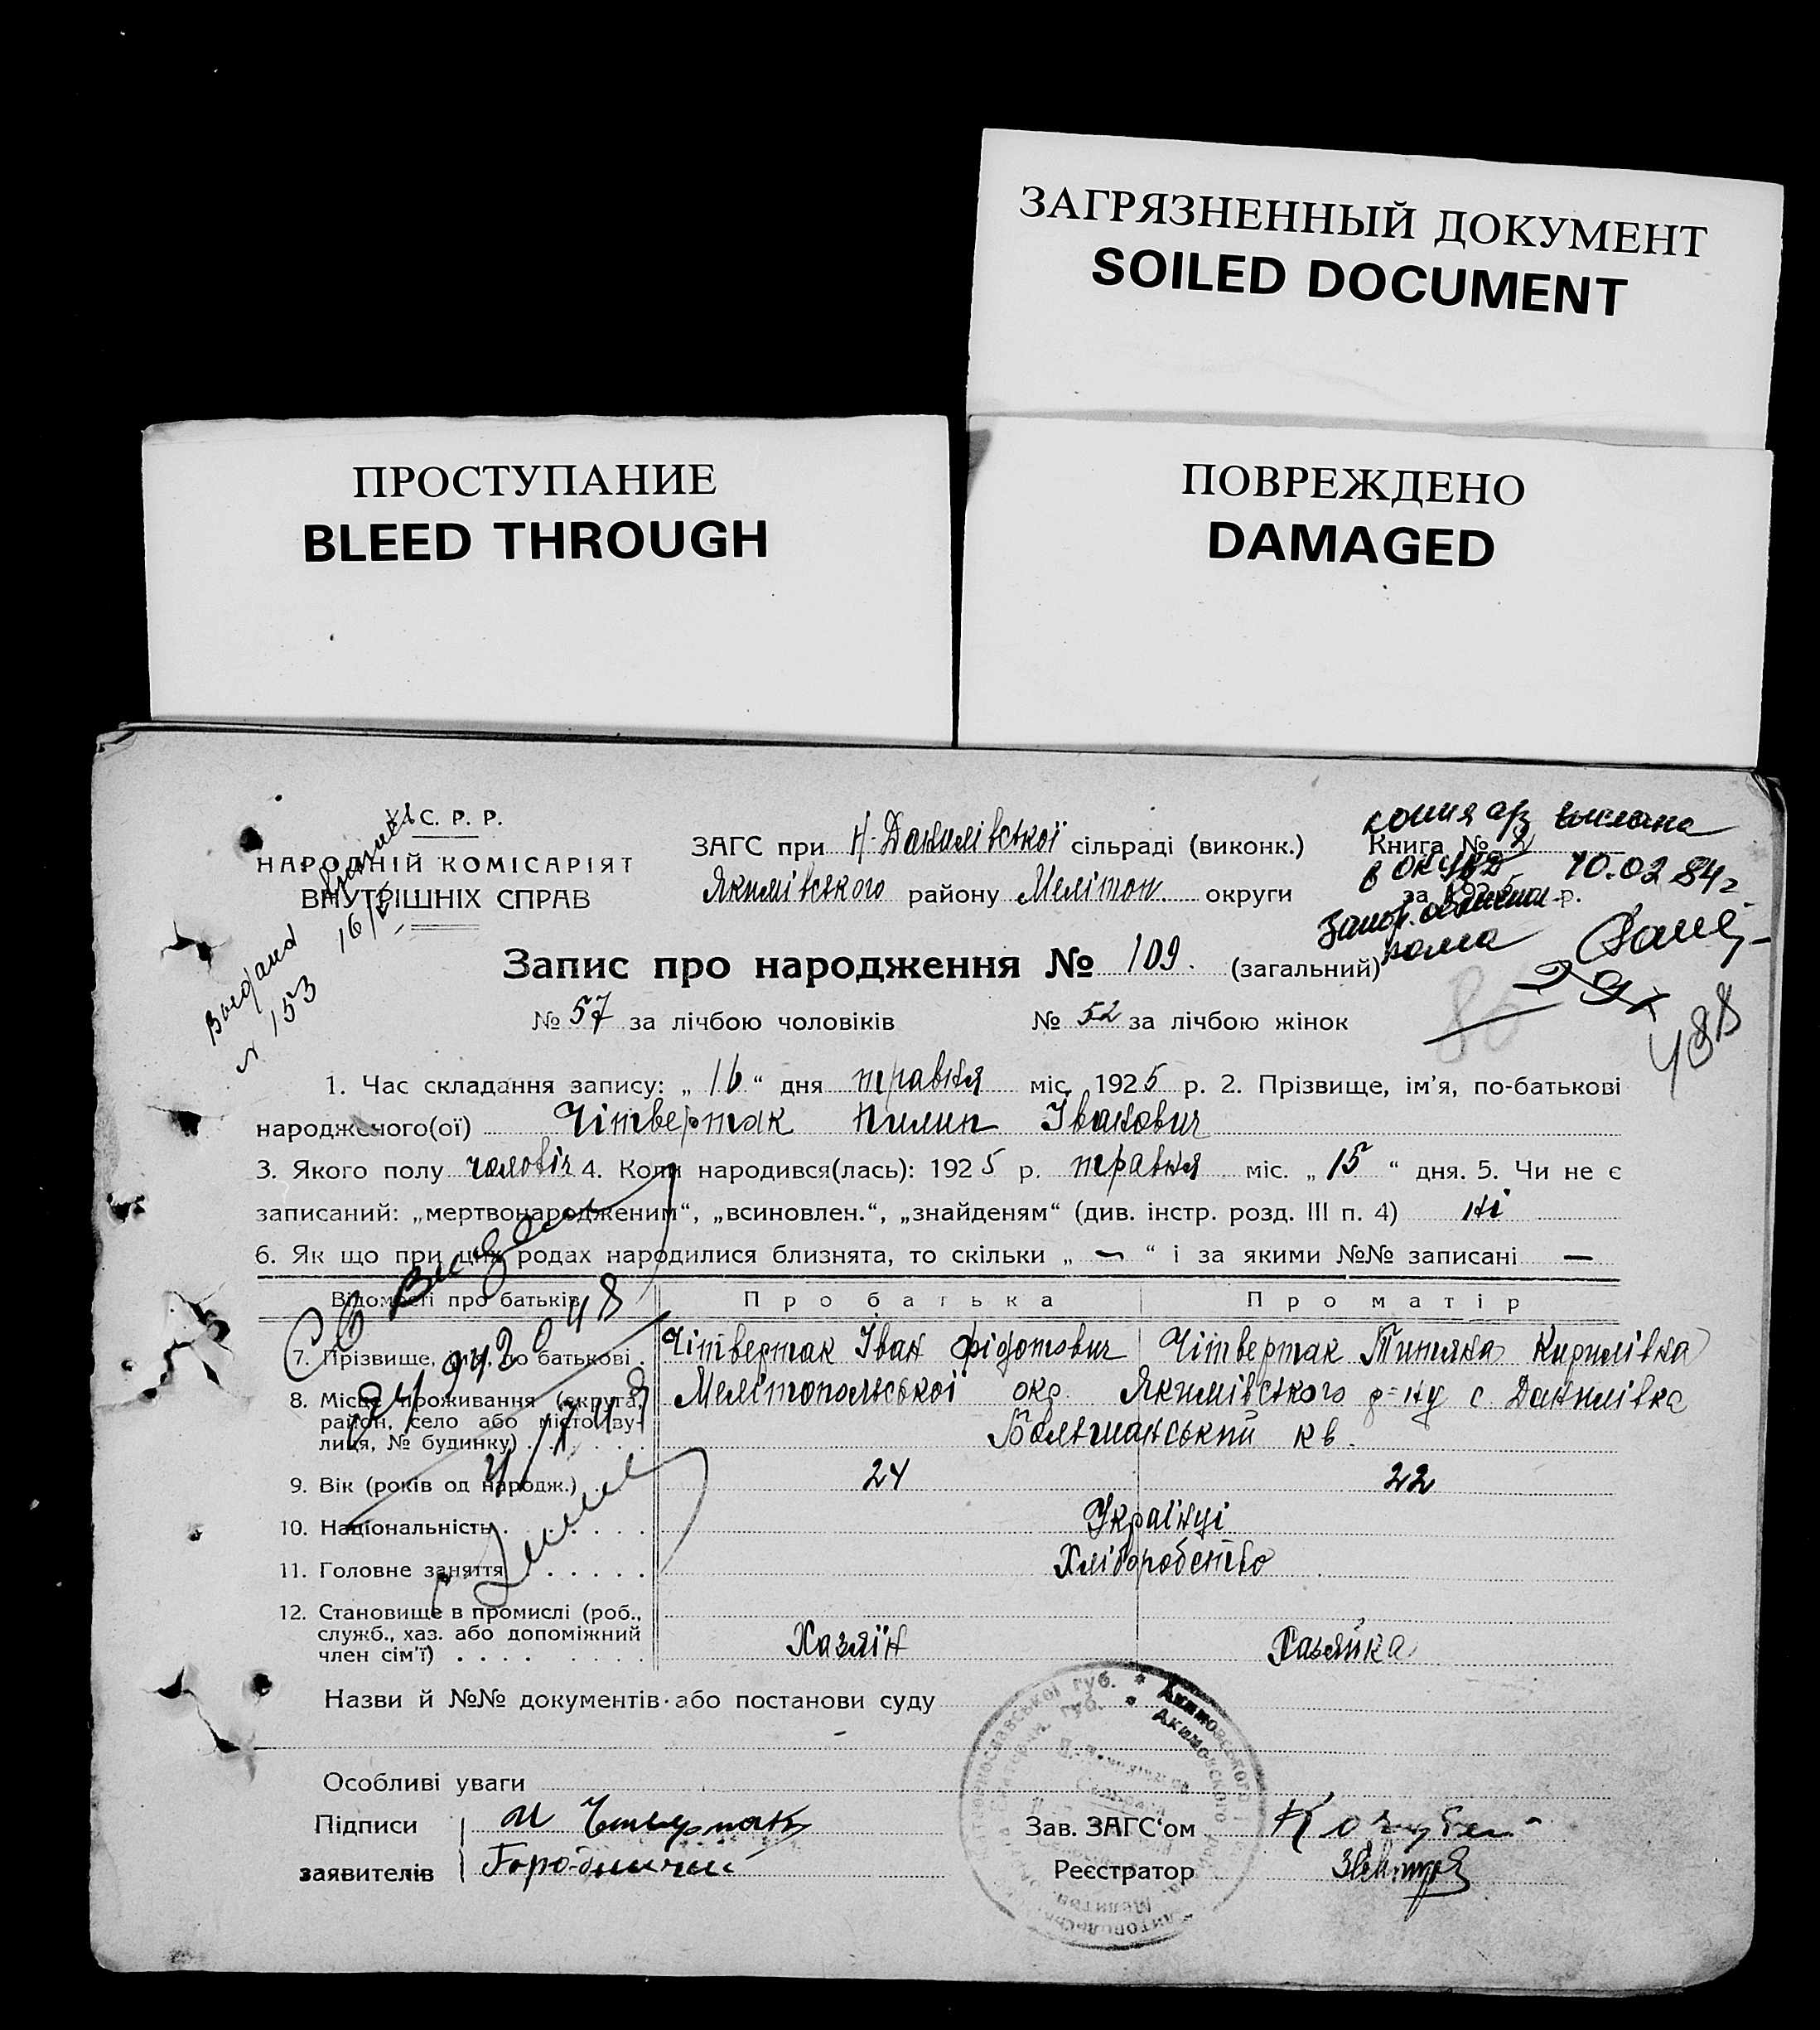 ЗАГРЯЗНЕННЫЙ ДОКУМЕНТ
SOILED DOCUMENT
ПРОСТУПАНИЕ
BLEED THROUGH
ПОВРЕЖДЕНО
DAMAGED
У. С. Р. Р.
НАРОДНІЙ КОМІСАРІЯТ
ВНУТРІШНІХ СПРАВ
№ 153 16/
ЗАГС при Н-Данилівської сільраді (виконк.)
Якимівського району Мелітоп округи
копия выслана
Книга № 2
в 10.02.84г
за 192 р.
Запис про народження № 109. (загальний)
№ 57 за лічбою чоловіків № 52 за лічбою жінок
488
1. Час складання запису: „ 16 “ дня травня міс. 1925 р. 2. Прізвище, ім'я, по-батькові
народженого(ої) Чітвертак Пилип Іванович
3. Якого полу чоловіч 4. Коли народився(лась): 1925 р. травня міс. „ 15 “ дня. 5. Чи не є
записаний: „мертвонародженим“, „всиновлен.“, „знайденям“ (див. інстр. розд. III п. 4) ні
6. Як що при цих родах народилися близнята, то скільки „ — “ і за якими №№ записані —
Відомості про батьків Про батька Про матір
7. Прізвище, ім'я, по батькові . Чітвертак Іван Фідотович Чітвертак Титяна Кирилівка
8. Місце проживання (округа, Мелітопольської окр. Якимівського р=ну с. Данилівка
район, село або місто, ву-
лиця, № будинку) . . . . . . Балтшанський кв.
9. Вік (років од народж.) . . 24 22
10. Національність . . . . . . Українці
11. Головне заняття . . . . . . Хліборобство
12. Становище в промислі (роб.,
служб., хаз. або допоміжний
член сім'ї) . . . . . . . . Хазяїн Хазяйка
Назви й №№ документів або постанови суду
Особливі уваги
Підписи И Четвертак Зав. ЗАГС'ом Кочубей
заявителів Городничий Реєстратор